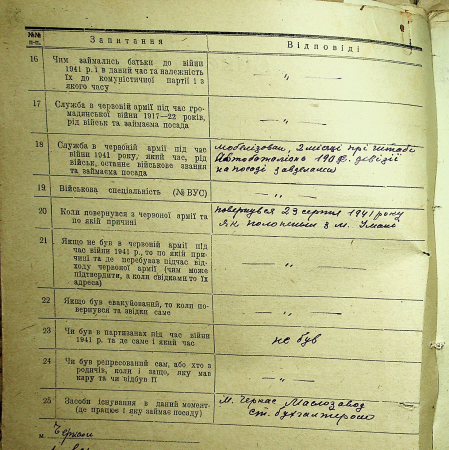 №№ п-п. Запитання Відповіді
16 Чим займались батьки до війни
1941 р. і в даний час та належність
їх до комуністичної партії і з
якого часу
— „ —
17 Служба в червоній армії під час гро-
мадянської війни 1917—22 років,
рід військ та займаєма посада
— „ —
18 Служба в червоній армії під час
війни 1941 року, який час, рід
військ, останнє військове звання
та займаєма посада
мобілізован, 2 місяці при штабі
Автобатальона 190 ф. дивізії
на посаді завделами
19 Військова спеціальність (№ ВУС) — „ —
20 Коли повернувся з червоної армії та
по якій причині
повернувся 23 серпня 1941 року
як полоненый з м. Умані
21 Якщо не був в червоній армії під
час війни 1941 р., то по якій при-
чині та де перебував підчас від-
ходу червоної армії (чим може
підтвердити, а коли свідками то їх
адреса)
„
22 Якщо був евакуйований, то коли по-
вернувся та звідки саме
— „ —
23 Чи був в партизанах під час війни
1941 р. та де саме і який час
не був
24 Чи був репресований сам, або хто з
родичів, коли і защо, яку мав
кару та чи відбув її
— „ —
25 Засоби існування в даний момент-
(де працює і яку займає посаду)
м. Черкас Маслозавод
ст. бухгалтером
м. Черкаси